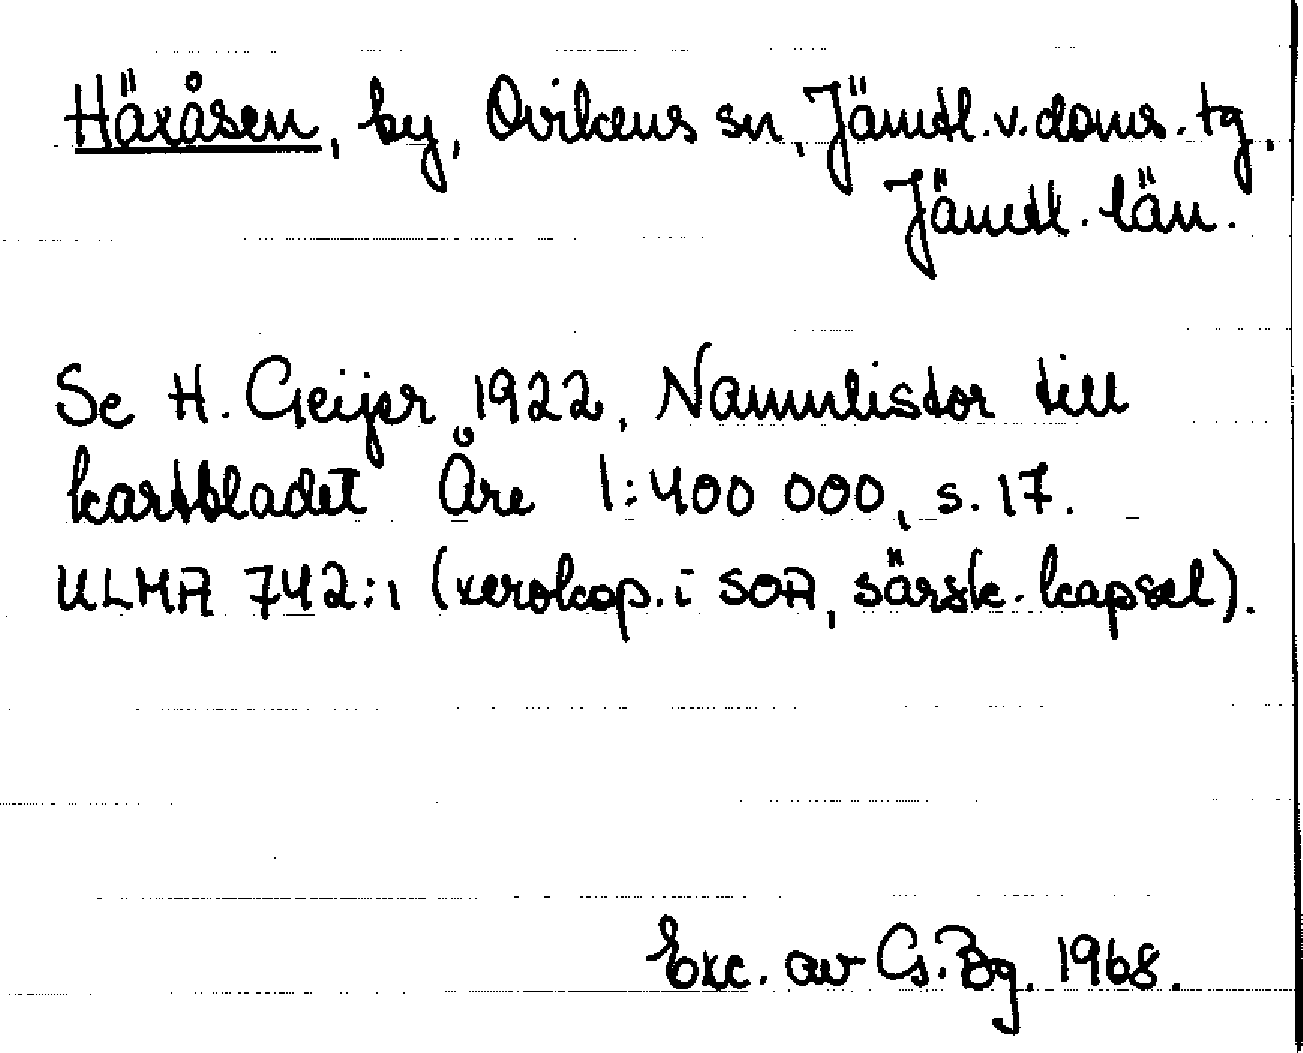 Häxåsen, by, Ovikens sn, Jämtl. v. doms. tg.
Jämtl. län.
Se H. Geijer 1922, Namnlistor till
kartbladet Åre 1:400 000, s. 17.
ULMA 742:1 (xerokop. i SOA, särsk. kapsel).
Exc. av G. Bg. 1968.